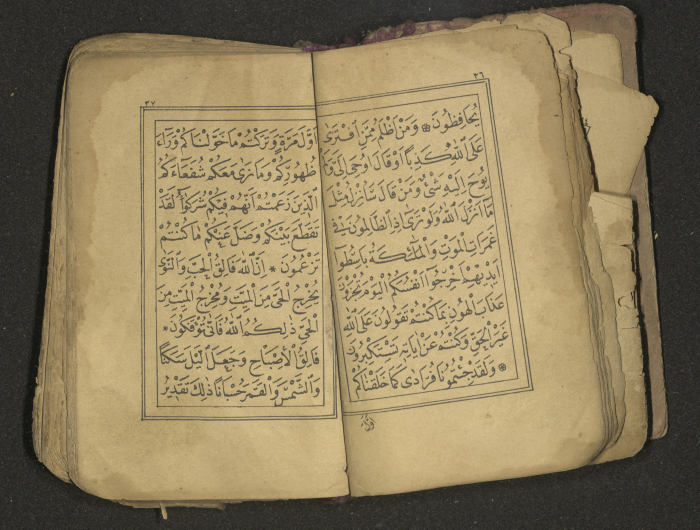 ٣٦
يُحَافِظُونَ ۞ وَمَنْ اَظْلَمُ مِمَّنِ افْتَرٰى
عَلَى اللّٰهِ كَذِبًا اَوْ قَالَ اُوحِىَ اِلَىَّ وَلَمْ
يُوحَ اِلَيْهِ شَىْءٌ وَمَنْ قَالَ سَاُنْزِلُ مِثْلَ
مَا اَنْزَلَ اللّٰهُ وَلَوْ تَرٰى اِذِ الظَّالِمُونَ فِى
غَمَرَاتِ الْمَوْتِ وَالْمَلٰئِكَةُ بَاسِطُوا
اَيْدِيهِمْ اَخْرِجُوا اَنْفُسَكُمْ اَلْيَوْمَ تُجْزَوْنَ
عَذَابَ الْهُونِ بِمَا كُنْتُمْ تَقُولُونَ عَلَى اللّٰهِ
غَيْرَ الْحَقِّ وَكُنْتُمْ عَنْ اٰيَاتِهِ تَسْتَكْبِرُونَ
۞ وَلَقَدْ جِئْتُمُونَا فُرَادٰى كَمَا خَلَقْنَاكُمْ
٣٧
اَوَّلَ مَرَّةٍ وَتَرَكْتُمْ مَا خَوَّلْنَاكُمْ وَرَاءَ
ظُهُورِكُمْ وَمَا نَرٰى مَعَكُمْ شُفَعَاءَكُمُ
الَّذِينَ زَعَمْتُمْ اَنَّهُمْ فِيكُمْ شُرَكٰؤُا لَقَدْ
تَقَطَّعَ بَيْنَكُمْ وَضَلَّ عَنْكُمْ مَا كُنْتُمْ
تَزْعُمُونَ ۞ اِنَّ اللّٰهَ فَالِقُ الْحَبِّ وَالنَّوٰى
يُخْرِجُ الْحَىَّ مِنَ الْمَيِّتِ وَمُخْرِجُ الْمَيِّتِ مِنَ
الْحَىِّ ذٰلِكُمُ اللّٰهُ فَاَنّٰى تُؤْفَكُونَ ۞
فَالِقُ الْاِصْبَاحِ وَجَعَلَ الَّيْلَ سَكَنًا
وَالشَّمْسَ وَالْقَمَرَ حُسْبَانًا ذٰلِكَ تَقْدِيرُ